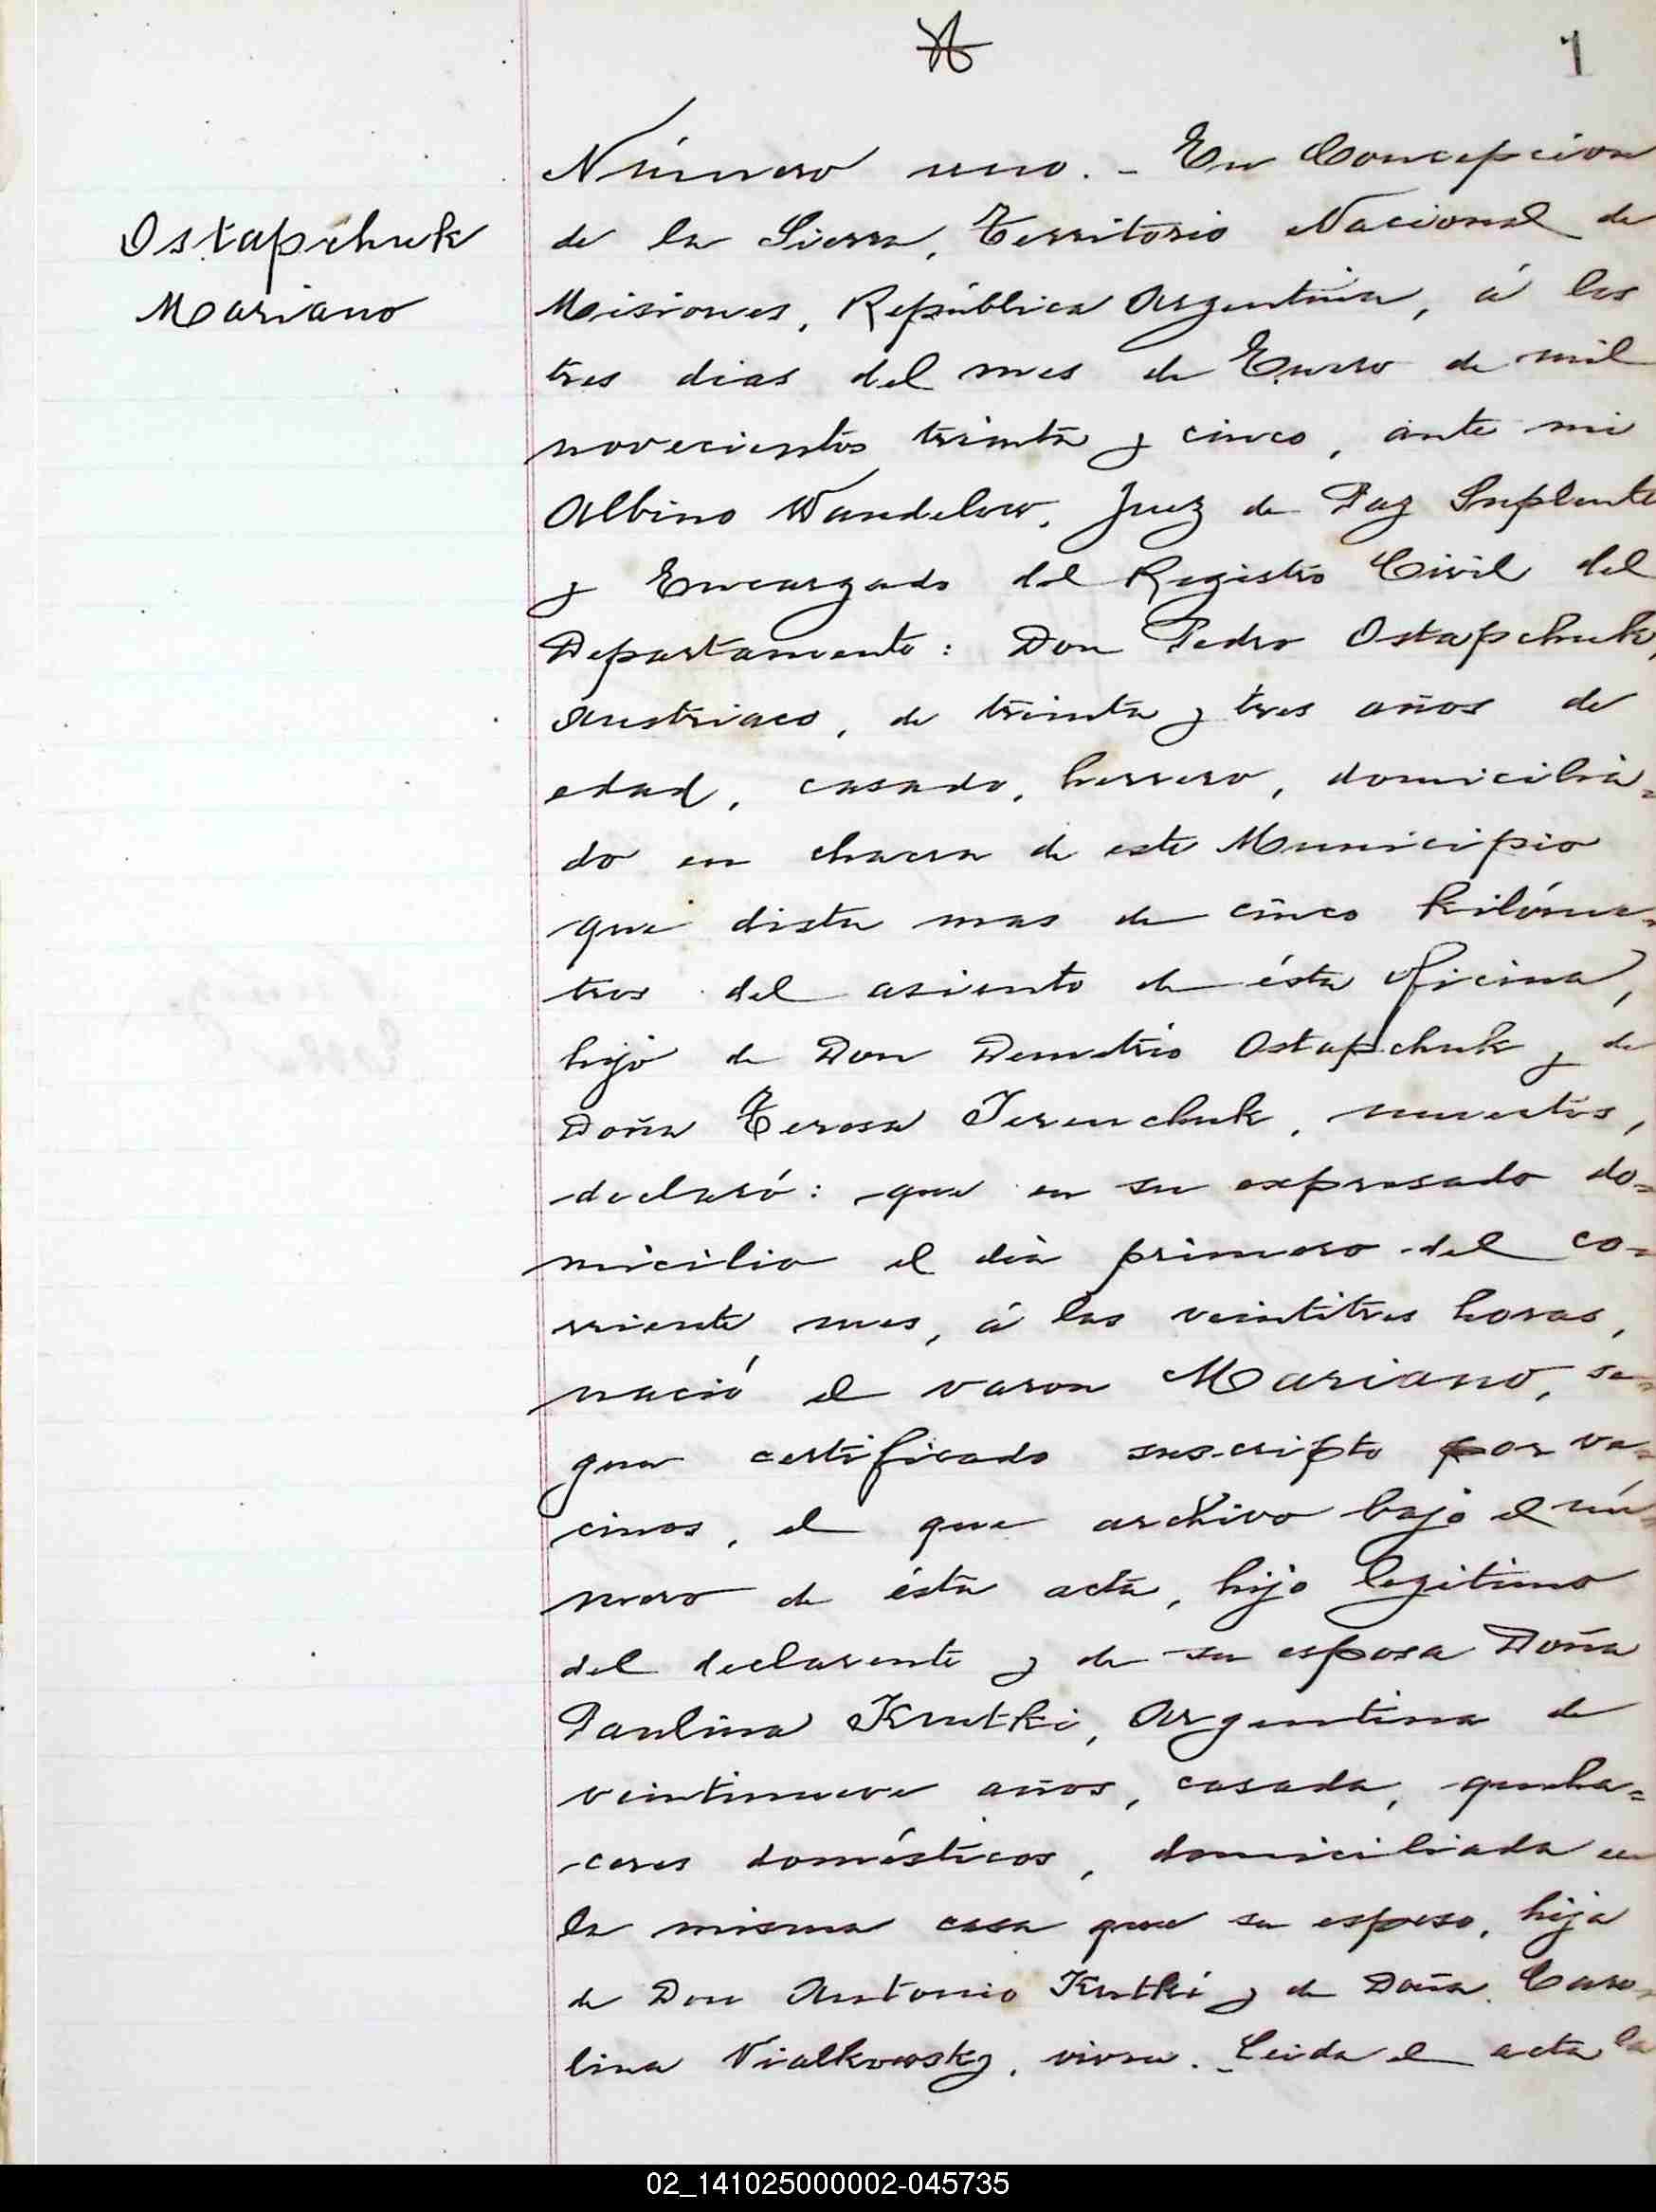 1
Ostapchuk
Mariano
Número uno. - En Concepcion
de la Sierra, Territorio Nacional de
Misiones, República Argentina, á los
tres dias del mes de Enero de mil
novecientos treinta y cinco, ante mi
Albino Wandelow, Juez de Paz Suplente
y Encargado del Registro Civil del
Departamento: Don Pedro Ostapchuk,
Austriaco, de treinta y tres años de
edad, casado, herrero, domicilia=
do en chacra de este Municipio
que dista mas de cinco kilóme=
tros del asiento de ésta oficina,
hijo de Don Demetrio Ostapchuk y de
Doña Teresa Terenchuk, muertos,
declaró: que en su expresado do=
micilio el dia primero del co=
rriente mes, á las veintitres horas,
nació el varon Mariano, se=
gun certificado suscripto por ve=
cinos, el que archivo bajo el nú=
mero de ésta acta, hijo legitimo
del declarente y de su esposa Doña
Paulina Krutki, Argentina de
veintinueve años, casada, queha=
ceres domésticos, domiciliada en
la misma casa que su esposo, hija
de Don Antonio Krutki y de Doña Caro=
lina Vialkowsky, vivos. - Leida el acta la
02_141025000002-045735